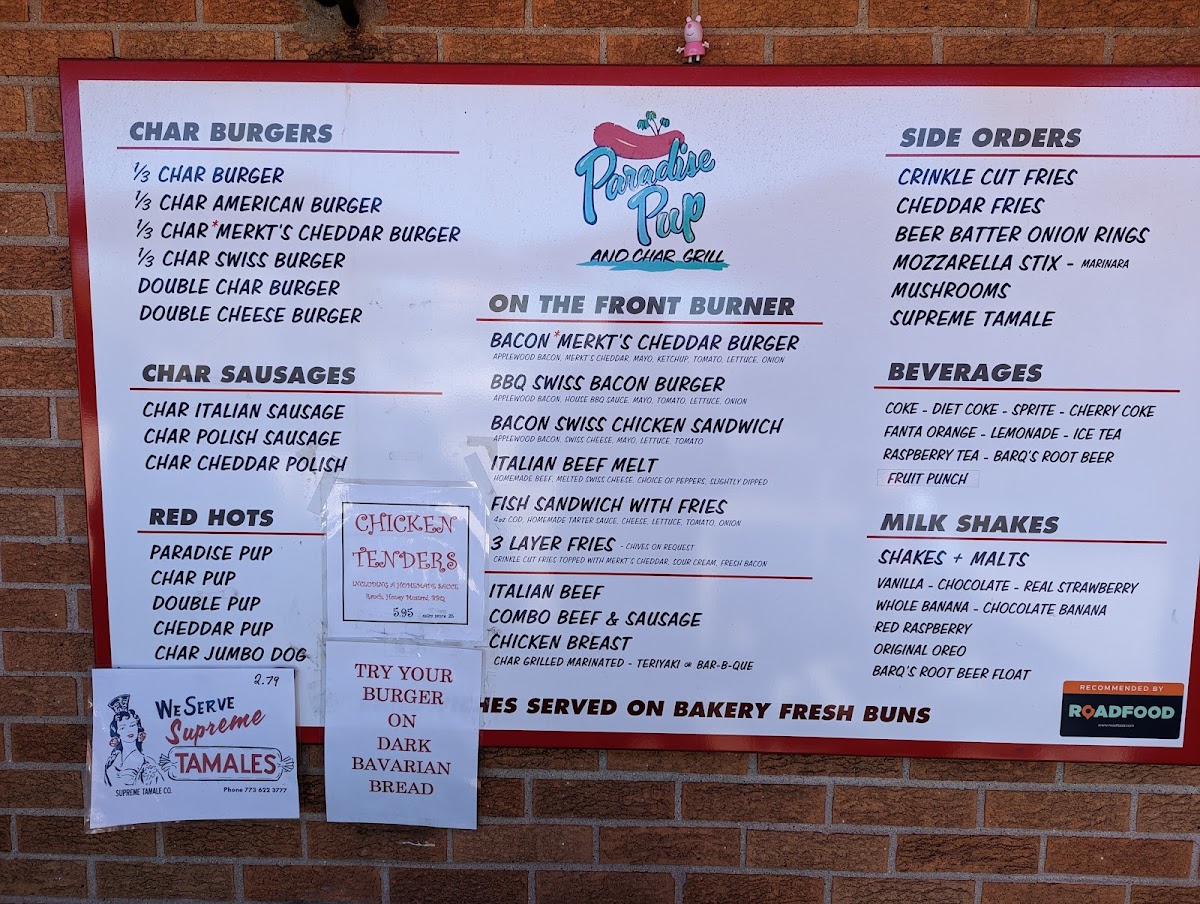 CHAR BURGERS
1/3 CHAR BURGER
1/3 CHAR AMERICAN BURGER
1/3 CHAR *MERKT'S CHEDDAR BURGER
1/3 CHAR SWISS BURGER
DOUBLE CHAR BURGER
DOUBLE CHEESE BURGER
CHAR SAUSAGES
CHAR ITALIAN SAUSAGE
CHAR POLISH SAUSAGE
CHAR CHEDDAR POLISH
RED HOTS
PARADISE PUP
CHAR PUP
DOUBLE PUP
CHEDDAR PUP
CHAR JUMBO DOG
2.79
WE SERVE
Supreme
TAMALES
SUPREME TAMALE CO.
Phone 773 622 3777
CHICKEN
TENDERS
INCLUDING A HOMEMADE SAUCE
Ranch, Honey Mustard, BBQ
5.95
TRY YOUR
BURGER
ON
DARK
BAVARIAN
BREAD
Paradise
Pup
AND CHAR GRILL
ON THE FRONT BURNER
BACON *MERKT'S CHEDDAR BURGER
APPLEWOOD BACON, MERKT'S CHEDDAR, MAYO, KETCHUP, TOMATO, LETTUCE, ONION
BBQ SWISS BACON BURGER
APPLEWOOD BACON, HOUSE BBQ SAUCE, MAYO, TOMATO, LETTUCE, ONION
BACON SWISS CHICKEN SANDWICH
APPLEWOOD BACON, SWISS CHEESE, MAYO, LETTUCE, TOMATO
ITALIAN BEEF MELT
HOMEMADE BEEF, MELTED SWISS CHEESE, CHOICE OF PEPPERS, SLIGHTLY DIPPED
FISH SANDWICH WITH FRIES
4oz COD, HOMEMADE TARTER SAUCE, CHEESE, LETTUCE, TOMATO, ONION
3 LAYER FRIES - CHIVES ON REQUEST
CRINKLE CUT FRIES TOPPED WITH MERKT'S CHEDDAR, SOUR CREAM, FRESH BACON
ITALIAN BEEF
COMBO BEEF & SAUSAGE
CHICKEN BREAST
CHAR GRILLED MARINATED - TERIYAKI OR BAR-B-QUE
HES SERVED ON BAKERY FRESH BUNS
SIDE ORDERS
CRINKLE CUT FRIES
CHEDDAR FRIES
BEER BATTER ONION RINGS
MOZZARELLA STIX - MARINARA
MUSHROOMS
SUPREME TAMALE
BEVERAGES
COKE - DIET COKE - SPRITE - CHERRY COKE
FANTA ORANGE - LEMONADE - ICE TEA
RASPBERRY TEA - BARQ'S ROOT BEER
FRUIT PUNCH
MILK SHAKES
SHAKES + MALTS
VANILLA - CHOCOLATE - REAL STRAWBERRY
WHOLE BANANA - CHOCOLATE BANANA
RED RASPBERRY
ORIGINAL OREO
BARQ'S ROOT BEER FLOAT
RECOMMENDED BY
ROADFOOD
www.roadfood.com